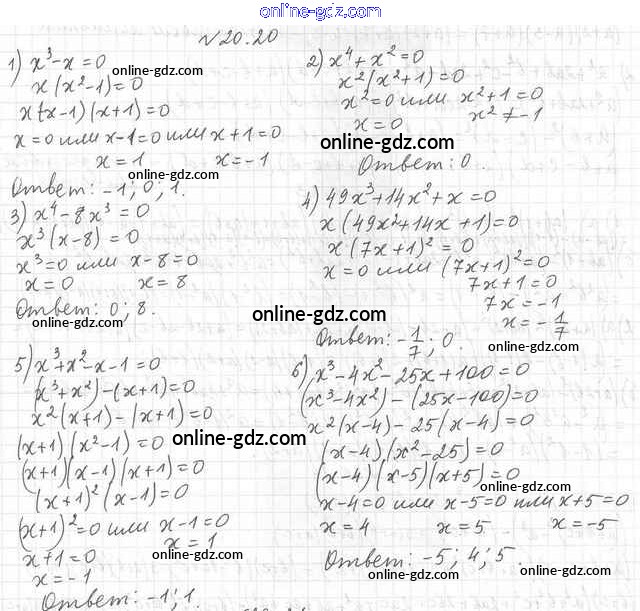 online-gdz.com
№20.20
1) x³-x=0
x(x²-1)=0
online-gdz.com
x(x-1)(x+1)=0
x=0 или x-1=0 или x+1=0
x=1 x=-1
Ответ: -1; 0; 1.
online-gdz.com
2) x⁴+x²=0
x²(x²+1)=0
x²=0 или x²+1=0
x=0 x²≠-1
online-gdz.com
Ответ: 0.
3) x⁴-8x³=0
x³(x-8)=0
x³=0 или x-8=0
x=0 x=8
Ответ: 0; 8.
online-gdz.com
4) 49x³+14x²+x=0
x(49x²+14x+1)=0
x(7x+1)²=0
x=0 или (7x+1)²=0
7x+1=0
7x=-1
x=-1/7
online-gdz.com
Ответ: -1/7; 0.
online-gdz.com
5) x³+x²-x-1=0
(x³+x²)-(x+1)=0
x²(x+1)-(x+1)=0
(x+1)(x²-1)=0
online-gdz.com
(x+1)(x-1)(x+1)=0
(x+1)²(x-1)=0
(x+1)²=0 или x-1=0
x=1
x+1=0
online-gdz.com
x=-1
Ответ: -1; 1.
6) x³-4x²-25x+100=0
(x³-4x²)-(25x-100)=0
x²(x-4)-25(x-4)=0
(x-4)(x²-25)=0
(x-4)(x-5)(x+5)=0
online-gdz.com
x-4=0 или x-5=0 или x+5=0
x=4 x=5 x=-5
Ответ: -5; 4; 5.
online-gdz.com
online-gdz.com